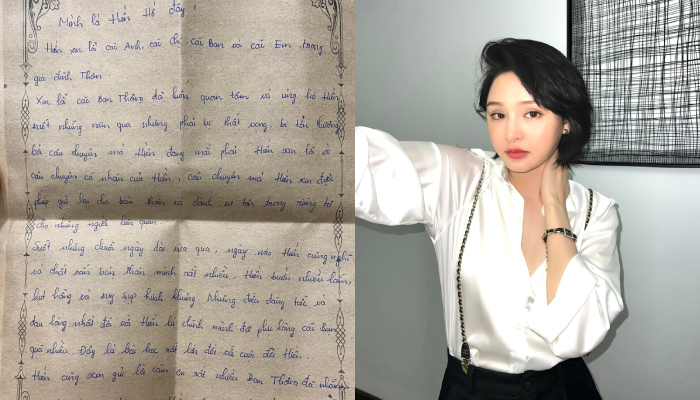 Mình là Hiền Hồ đây!
Hiền xin lỗi các Anh, các chị, các Bạn và các Em trong
gia đình Thơm.
Xin lỗi các Bạn Thơm đã luôn quan tâm và ủng hộ Hiền
suốt những năm qua nhưng phải bị thất vọng, bị tổn thương
bởi câu chuyện mà Hiền đang mắc phải. Hiền xin lỗi vì
câu chuyện cá nhân của Hiền, câu chuyện mà Hiền xin được
phép giữ lại cho bản thân và dành sự tôn trọng riêng tư
cho những người liên quan.
Suốt những chuỗi ngày dài vừa qua, ngày nào Hiền cũng nghĩ
và chất vấn bản thân mình rất nhiều. Hiền buồn nhiều lắm,
hụt hẫng và suy sụp kinh khủng. Nhưng điều đáng tiếc và
đau lòng nhất đối với Hiền là chính mình đã phụ lòng các bạn
quá nhiều. Đây là bài học rất lớn đối với cuộc đời Hiền.
Hiền cũng xin gửi lời cảm ơn rất nhiều Bạn Thơm đã nhắn